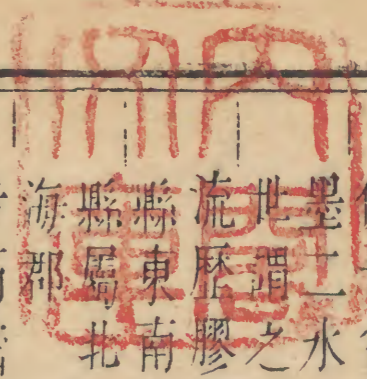 墨二水
世謂之
流歷膠
縣東南
縣屬北
海郡